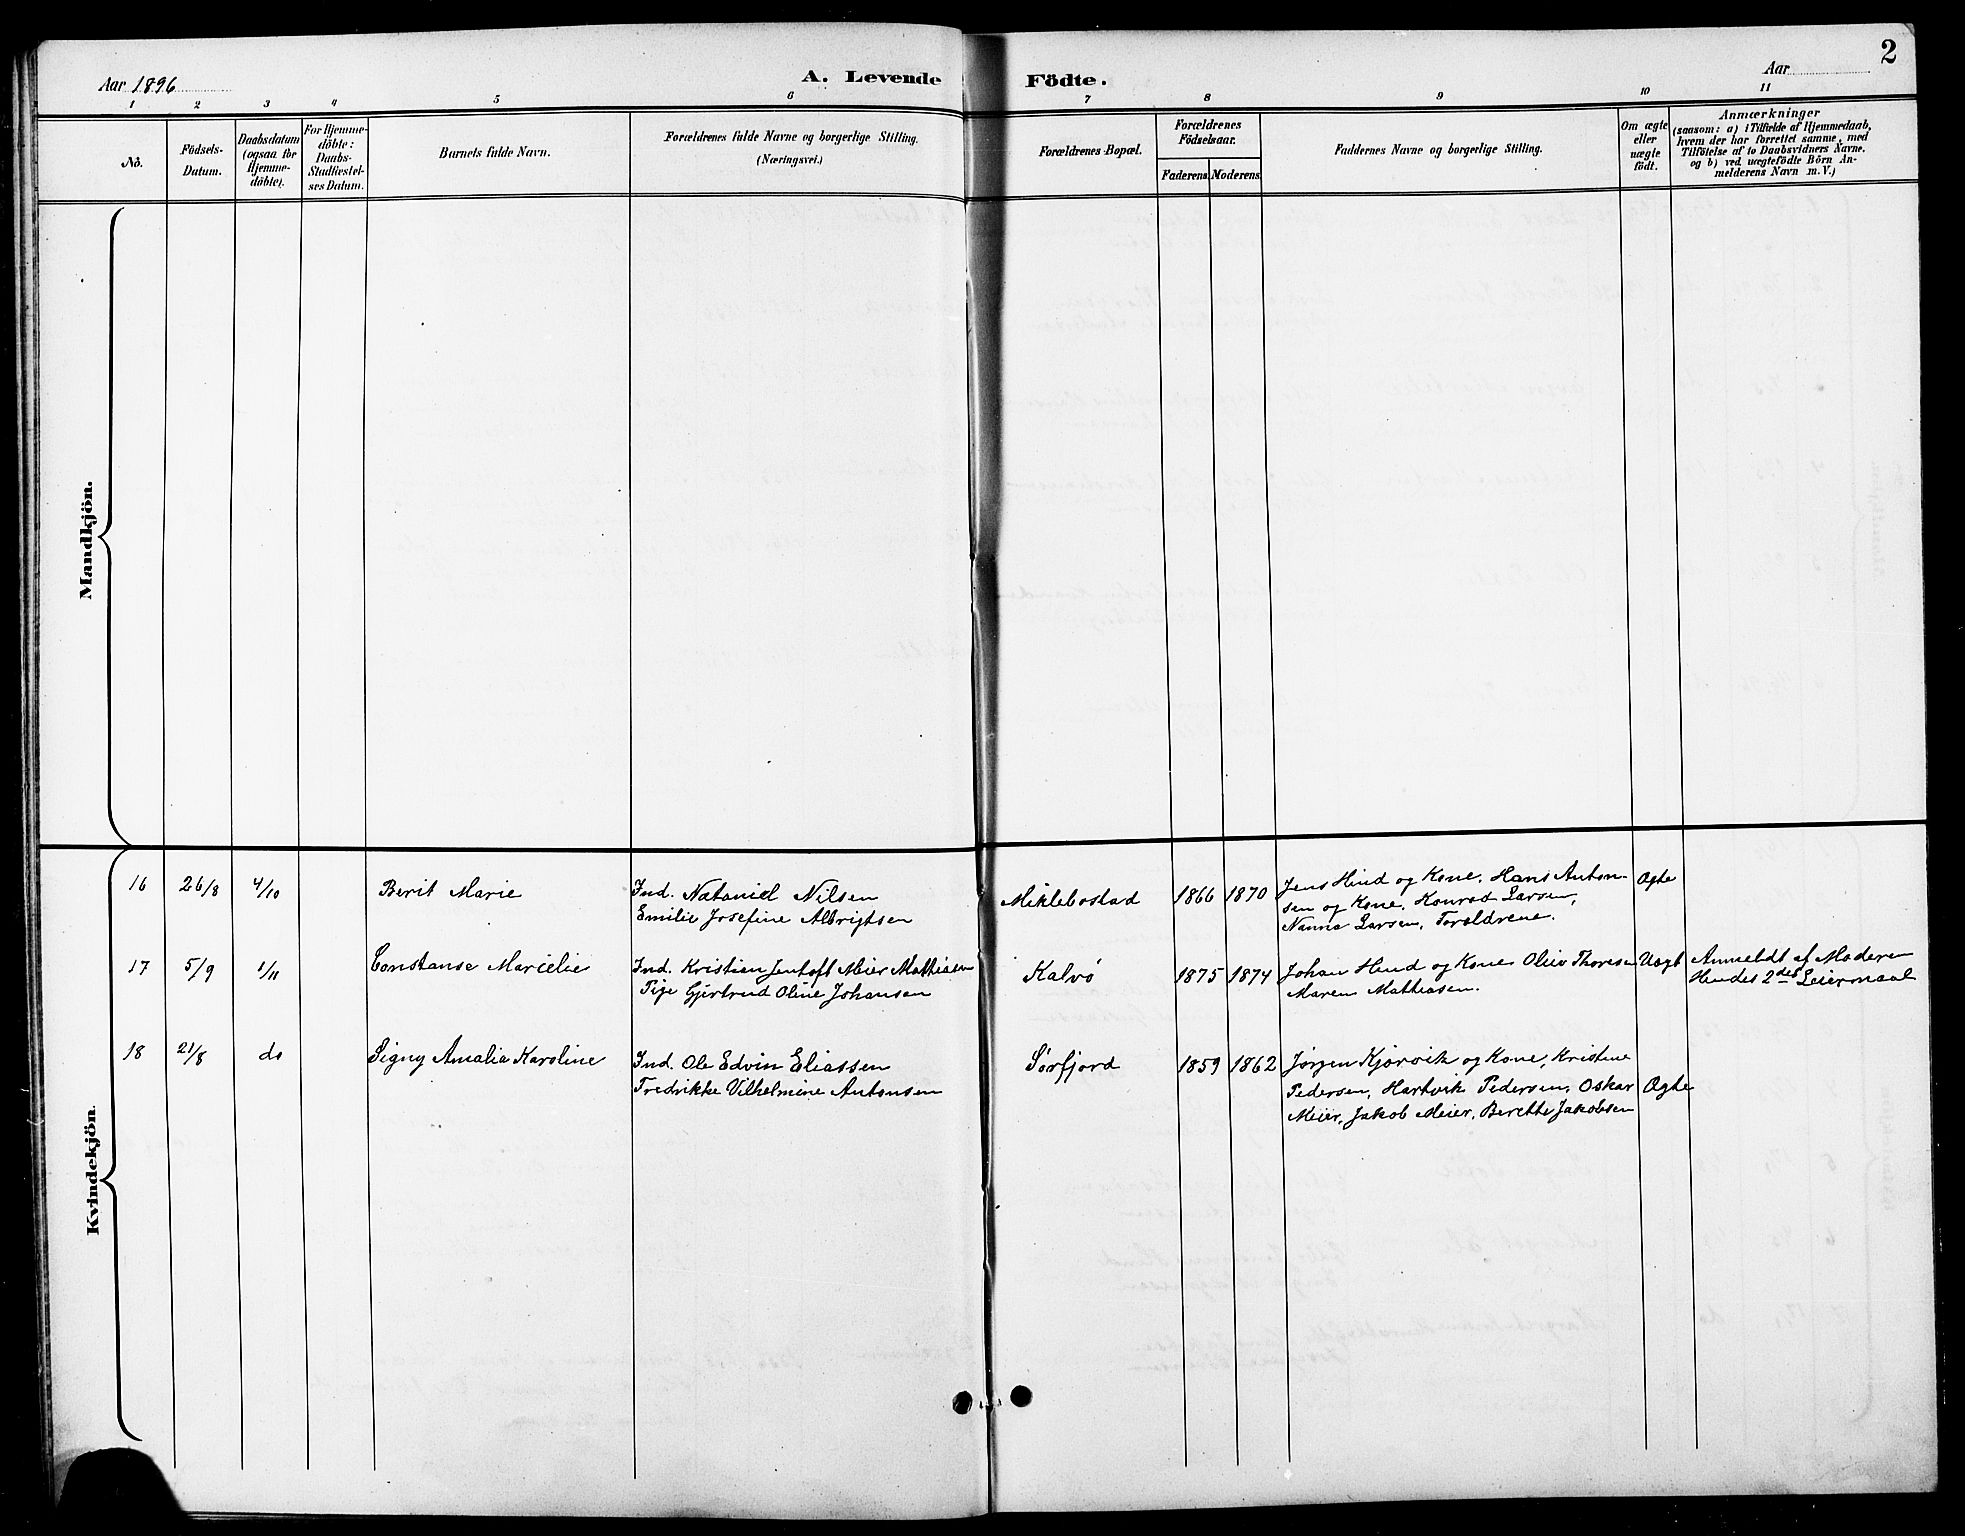 2
Aar 1896
A. Levende
Födte.
Aar
1 2 3 4 5 6 7 8 9 10 11
No.
Födsels-
Datum.
Daabsdatum
(ogsaa for
Hjemme-
döbte).
For Hjemme-
döbte:
Daabs-
Stadfæstel-
ses Datum.
Barnets fulde Navn.
Forældrenes fulde Navne og borgerlige Stilling.
(Næringsvei.)
Forældrenes Bopæl.
Forældrenes
Födselsaar.
Faderens. Moderens.
Faddernes Navne og borgerlige Stilling.
Om ægte
eller
uægte
födt.
Anmærkninger
(saasom: a) i Tilfælde af Hjemmedaab,
hvem der har forrettet samme, med
Tilföielse af to Daabsvidners Navne.
og b) ved uægtefödte Börn An-
melderens Navn m. V.)
Mandkjön.
Kvindekjön.
16 26/8 4/10 Berit Marie
Ind. Nataniel Nilsen
Emilie Josefine Albrigtsen
Miklebostad 1866 1870
Jens Hind og Kone, Hans Anton-
sen og Kone, Konrad Larsen,
Nanna Larsen, Forældrene.
Ægte
17 5/9 1/11 Constanse Marcelie
Ind. Kristian Jentoft Meier Mathiasen
Pige Gjertrud Oline Johansen
Kalvø 1875 1874
Johan Hind og Kone Oliv Thoresen
Maren Mathiasen.
Uægt
Anmeldt af Moderen
Hendes 2det Leiermaal
18 21/8 do Signy Amalia Karoline
Ind. Ole Edvin Eliassen
Fredrikke Vilhelmine Antonsen
Sørfjord 1859 1862
Jørgen Kjørvik og Kone, Kristine
Pedersen, Hartvik Pedersen, Oskar
Meier, Jakob Meier, Berette Jakobsen
Ægte